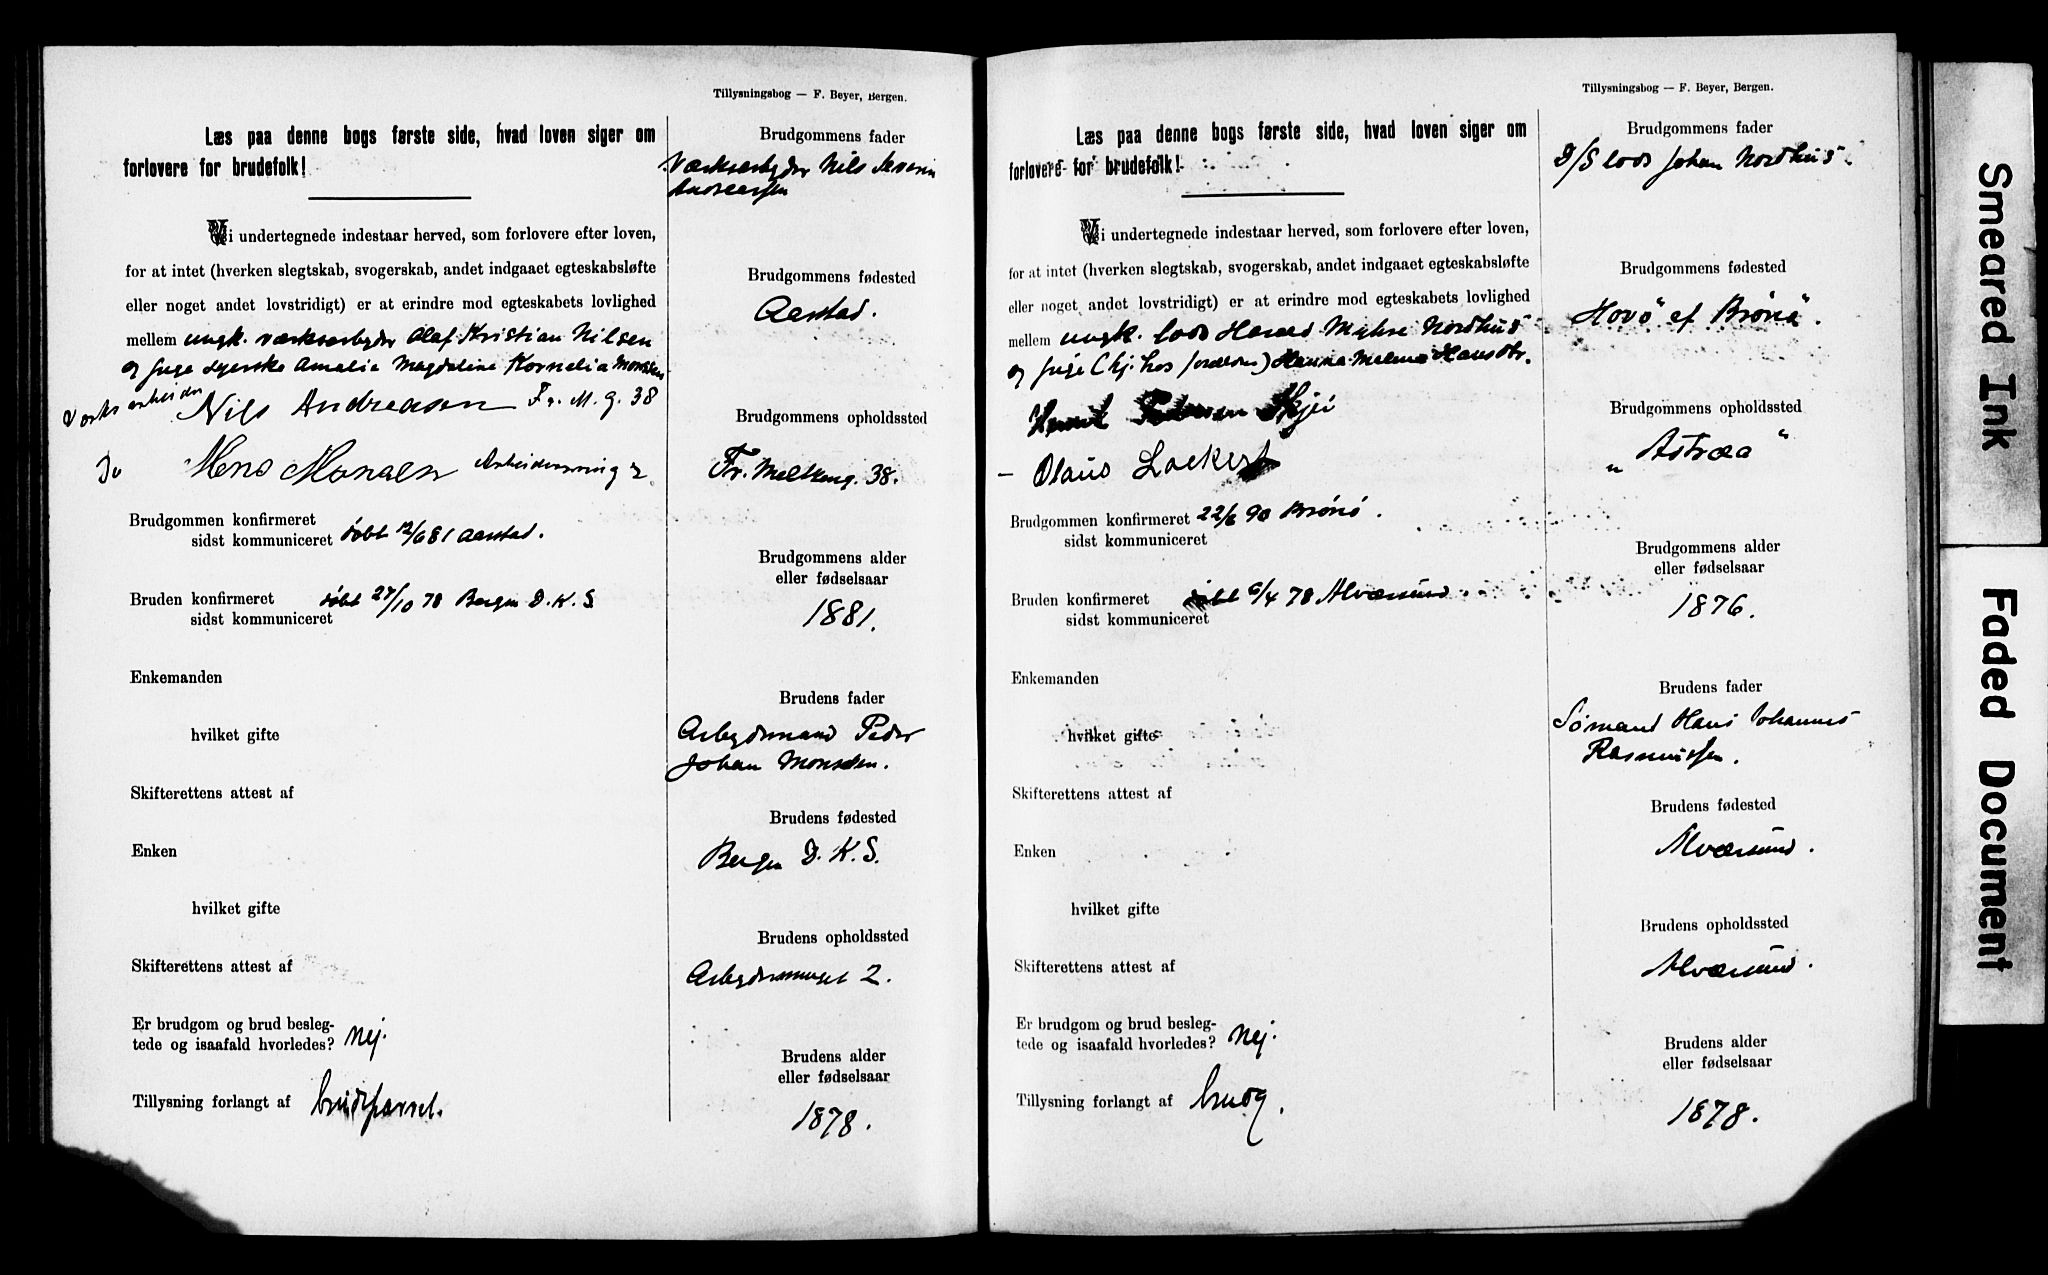 Tillysningsbog — F. Beyer, Bergen.
Læs paa denne bogs første side, hvad loven siger om
forlovere for brudefolk!
Vi undertegnede indestaar herved, som forlovere efter loven,
for at intet (hverken slegtskab, svogerskab, andet indgaaet egteskabsløfte
eller noget andet lovstridigt) er at erindre mod egteskabets lovlighed
mellem ungk. værksarbyder Olaf Kristian Nilsen
og pige syerske Amalie Magdaline Kornelia Monsen
Verksarbeider Nils Andreasen Fr. M. g. 38
Do Mons Monsen 2
Brudgommen konfirmeret
sidst kommuniceret døbt 12/6 81 Aarstad.
Bruden konfirmeret døbt 27/10 78 Bergen D. K. S
sidst kommuniceret
Enkemanden
hvilket gifte
Skifterettens attest af
Enken
hvilket gifte
Skifterettens attest af
Er brudgom og brud besleg-
tede og isaafald hvorledes? Nej.
Tillysning forlangt af brudeparret.
Brudgommens fader
Værksarbyder Nils Severin
Andreassen
Brudgommens fødested
Aarstad.
Brudgommens opholdssted
Fr. Meltzerg. 38.
Brudgommens alder
eller fødselsaar
1881.
Brudens fader
Arbejdsmand Peder
Johan Monsen.
Brudens fødested
Bergen D. K. S.
Brudens opholdssted
2.
Brudens alder
eller fødselsaar
1878.
Tillysningsbog — F. Beyer, Bergen.
Læs paa denne bogs første side, hvad loven siger om
forlovere for brudefolk!
Vi undertegnede indestaar herved, som forlovere efter loven,
for at intet (hverken slegtskab, svogerskab, andet indgaaet egteskabsløfte
eller noget andet lovstridigt) er at erindre mod egteskabets lovlighed
mellem ungk. lods Harald Nordhus
og pige (hj. hos forældre) Hanna Hansdtr.
Henrik Pedersen Skjei
– Olaus Lockert
Brudgommen konfirmeret 22/6 90 Brønø.
sidst kommuniceret
Bruden konfirmeret døbt 6/4 78 Alværsund.
sidst kommuniceret
Enkemanden
hvilket gifte
Skifterettens attest af
Enken
hvilket gifte
Skifterettens attest af
Er brudgom og brud besleg-
tede og isaafald hvorledes? Nej.
Tillysning forlangt af brudg.
Brudgommens fader
D/S lods Johan Nordhus.
Brudgommens fødested
Hovø af Brønø.
Brudgommens opholdssted
„Astræa"
Brudgommens alder
eller fødselsaar
1876.
Brudens fader
Sømand Hans Johannes
Rasmussen.
Brudens fødested
Alværsund.
Brudens opholdssted
Alværsund.
Brudens alder
eller fødselsaar
1878.
Smeared Ink
Faded Document